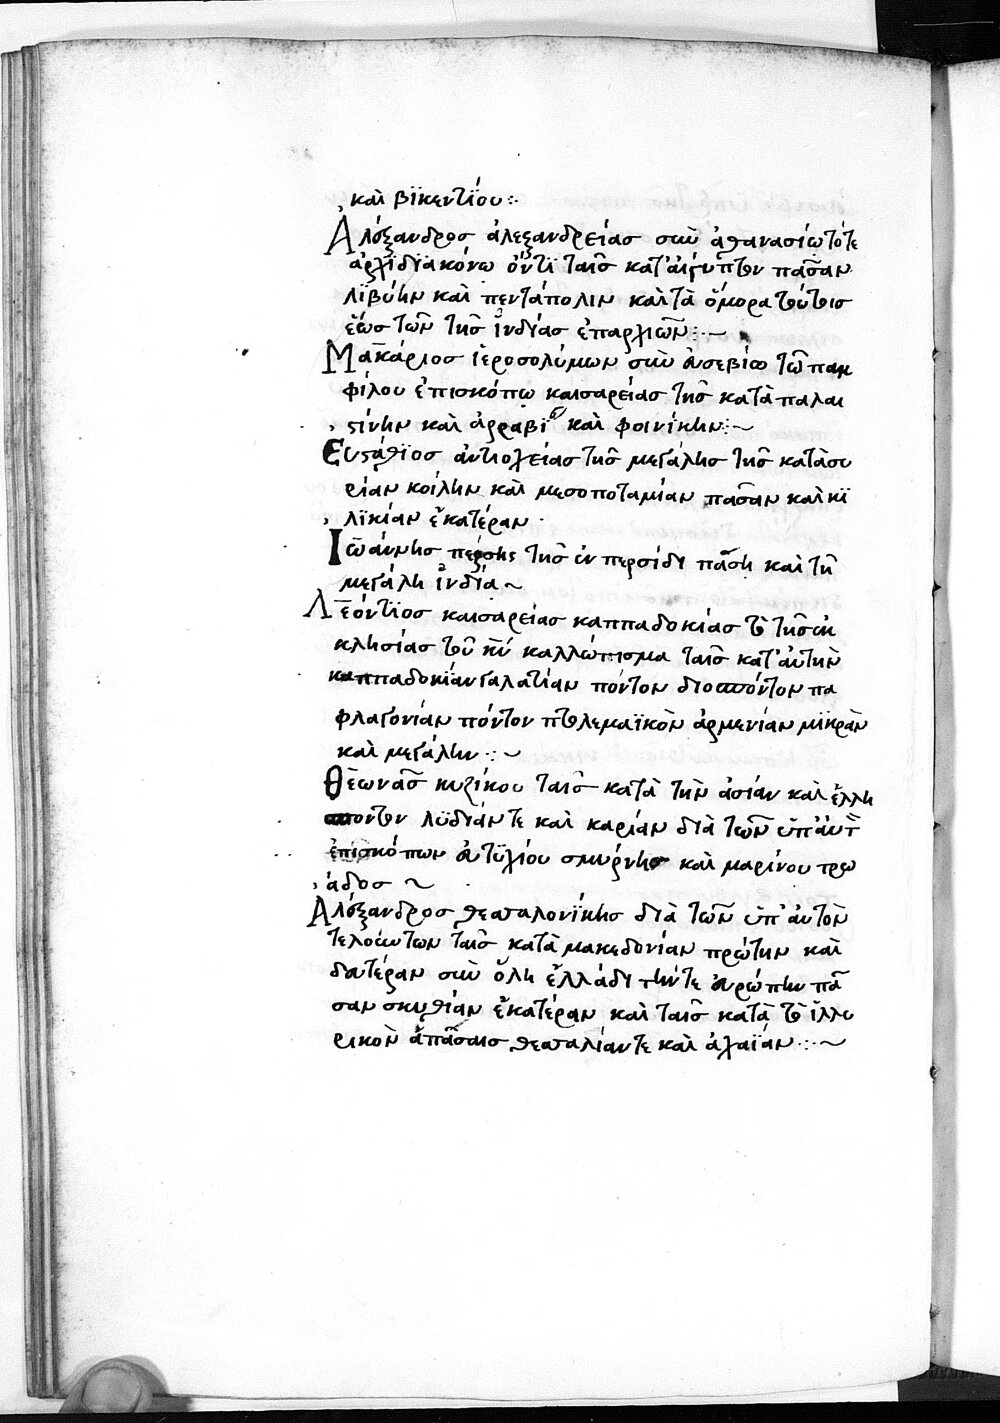 καὶ βϊκεντΐου :·
Ἀλέξανδρος ἀλεξανδρείας σὺν ἀθανασίω τότε
ἀρχϊδϊακόνω ὄντϊ ταῖς κατ' αἴγυπτον πᾶσαν
λϊβύην καὶ πεντάπολιν καὶ τὰ ὅμορα τούτοις
ἕως τῶν τῆς ἰνδΐας ἐπαρχιῶν :·~
Μακάριος ἱεροσολύμων σὺν εὐσεβίω τῶ παμ
φίλου ἐπισκόπω καισαρείας τῆς κατὰ παλαι
ϛίνην καὶ ἀρραβΐ καὶ φοινίκην :~
Εὐϛάθϊος ἀντιοχείας τῆς μεγάλης τῆς κατὰ συ
ρίαν κοίλην καὶ μεσοποταμίαν πᾶσαν καὶ κϊ
λϊκίαν ἑκατέραν ·
Ἰωάννης πέρσης τῆς ἐν περσίδι πάση καὶ τῆ
μεγάλη ἰνδία ~
Λεόντϊος καισαρείας καππαδοκίας τὸ τῆς ἐκ
κλησίας τοῦ κῦ καλλώπισμα ταῖς κατ' αὐτὴν
καππαδοκΐαν γαλατίαν πόντον διοσπόντον πα
φλαγονίαν πόντον πτολεμαϊκὸν ἀρμενίαν μϊκρὰν
καὶ μεγάλην :·~
Θεωνᾶς κυζίκου ταῖς κατὰ τὴν ἀσίαν καὶ ἑλλη
σποντον λϋδίαν τε καὶ καρίαν διὰ τῶν ὑπ' αὐτ
ἐπισκόπων εὐτϋχίου σμύρνης καὶ μαρίνου τρω
άδος ~
Ἀλέξανδρος θεσσαλονΐκης διὰ τῶν ὑπ' αὐτὸν
τελούντων ταῖς κατὰ μακεδονίαν πρώτην καὶ
δευτέραν σὺν ὅλη ἑλλάδι τήν τε εὐρώπην πᾶ
σαν σκυθίαν ἑκατέραν καὶ ταῖς κατὰ τὸ ἰλλυ
ρικὸν ἁπάσαις θεσσαλίαν τε καὶ ἀχαΐαν :·~